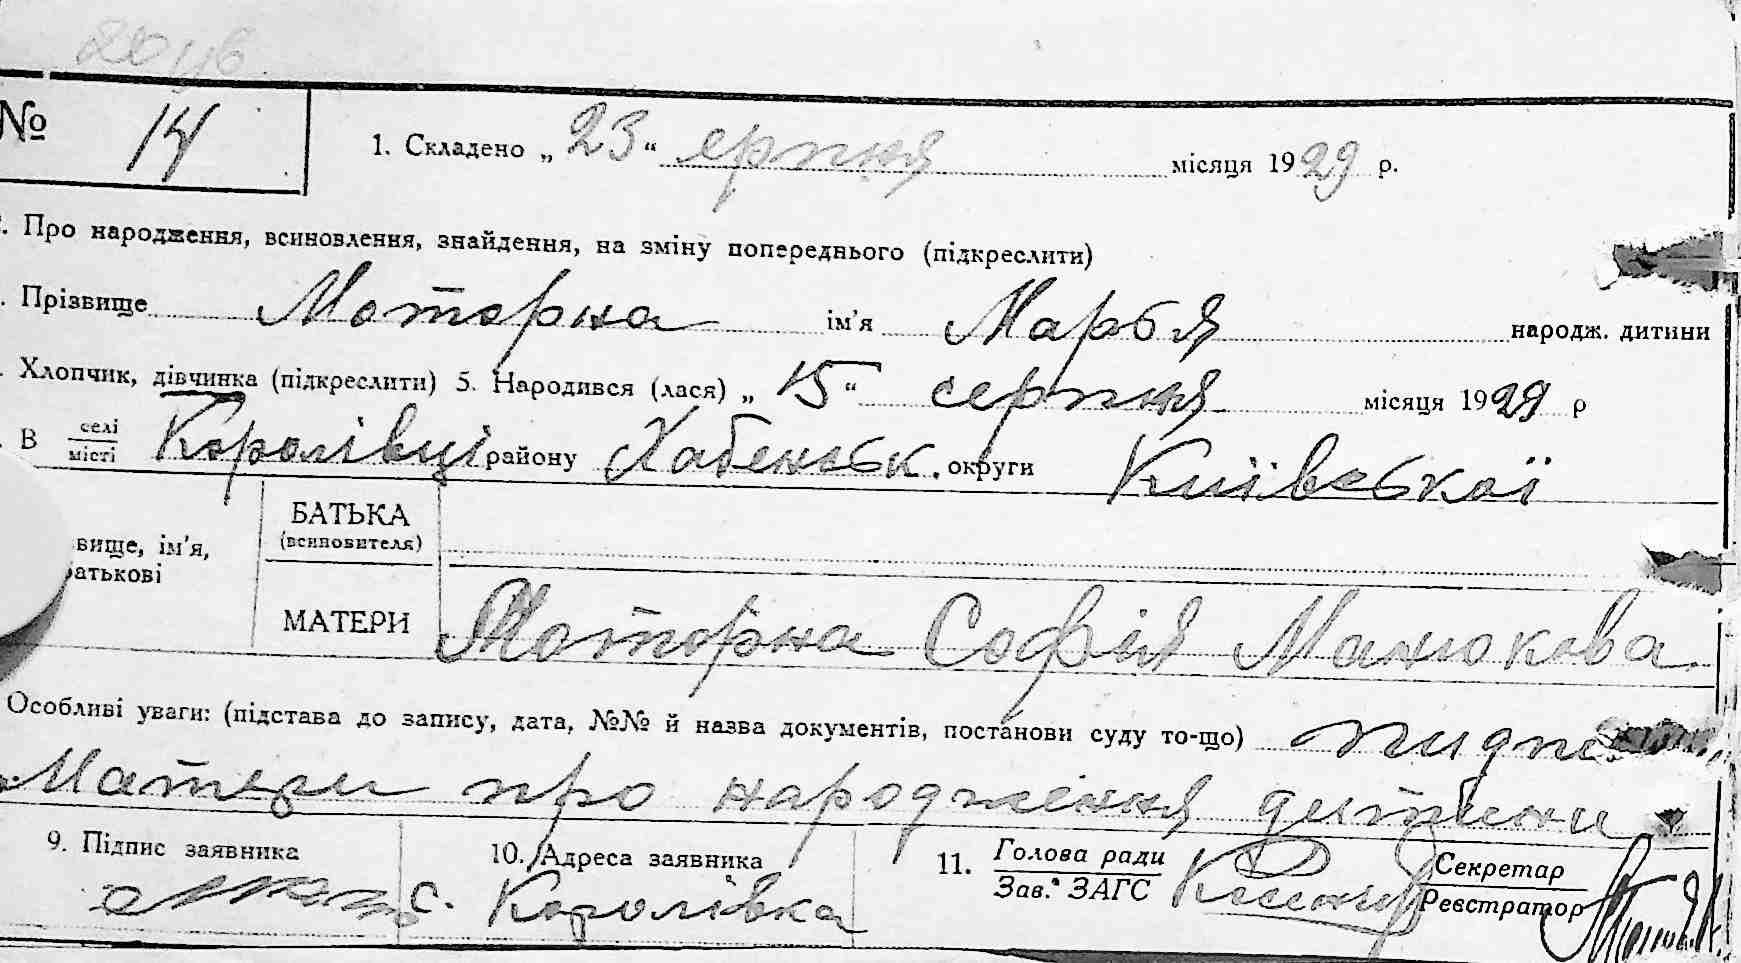 № 14
1. Складено „23“ ерпня місяця 1929 р.
. Про народження, всиновлення, знайдення, на зміну попереднього (підкреслити)
. Прізвище Моторна ім'я Марья народж. дитини
. Хлопчик, дівчинка (підкреслити) 5. Народився (лася) „15“ серпня місяця 1929 р
. В селі місті Королівці району Хабенськ. округи Київської
вище, ім'я, атькові
БАТЬКА (всиновителя)
МАТЕРИ Моторна Софія Манюкова
Особливі уваги: (підстава до запису, дата, №№ й назва документів, постанови суду то-що)
Матери про народження дитини
9. Підпис заявника
10. Адреса заявника
с. Королівка
11. Голова ради
Зав. ЗАГС
Секретар
Реєстратор